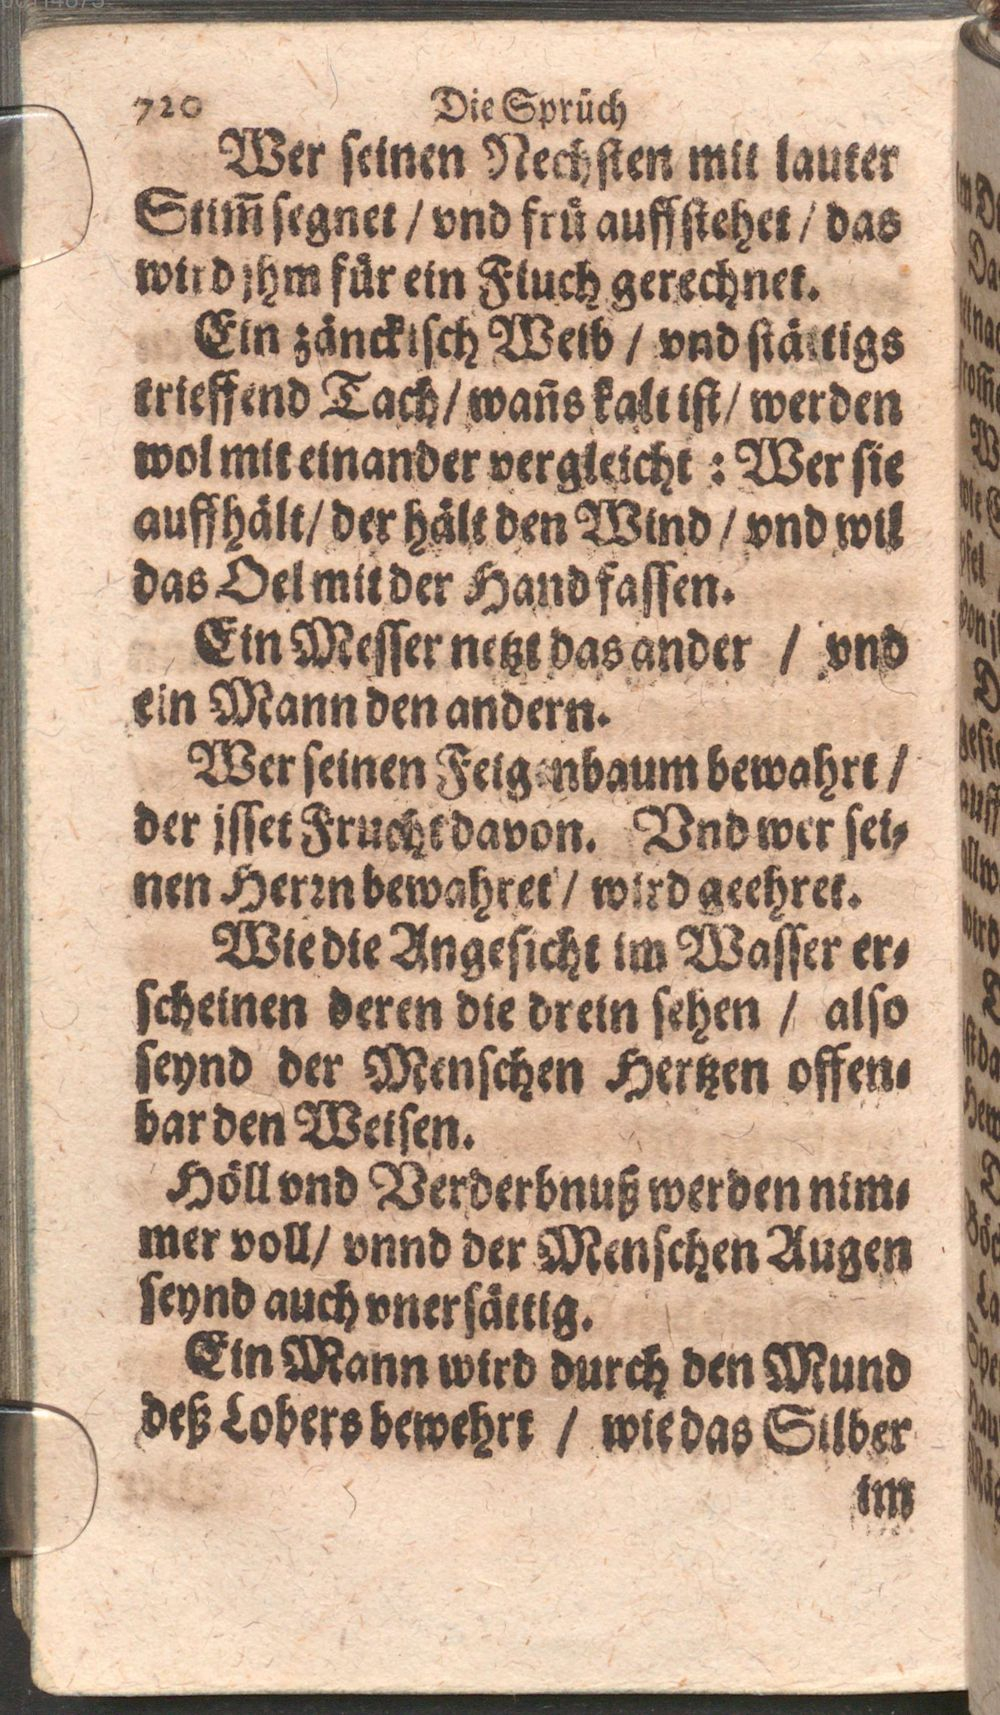 720 Die Sprüch
Wer seinen Nechsten mit lauter
Stim̃ segnet / vnd frü auffstehet / das
wird jhm für ein Fluch gerechnet.
Ein zänckisch Weib / vnd stättigs
trieffend Tach / wañs kalt ist / werden
wol mit einander vergleicht : Wer sie
auffhält / der hält den Wind / vnd wil
das Oel mit der Hand fassen.
Ein Messer netzt das ander / vnd
ein Mann den andern.
Wer seinen Feigenbaum bewahrt /
der jsset Frucht davon. Vnd wer sei-
nen Herrn bewahret / wird geehret.
Wie die Angesicht im Wasser er-
scheinen deren die drein sehen / also
seynd der Menschen Hertzen offen-
bar den Weisen.
Höll vnd Verderbnuß werden nim-
mer voll / vnnd der Menschen Augen
seynd auch vnersättig.
Ein Mann wird durch den Mund
deß Lobers bewehrt / wie das Silber
im